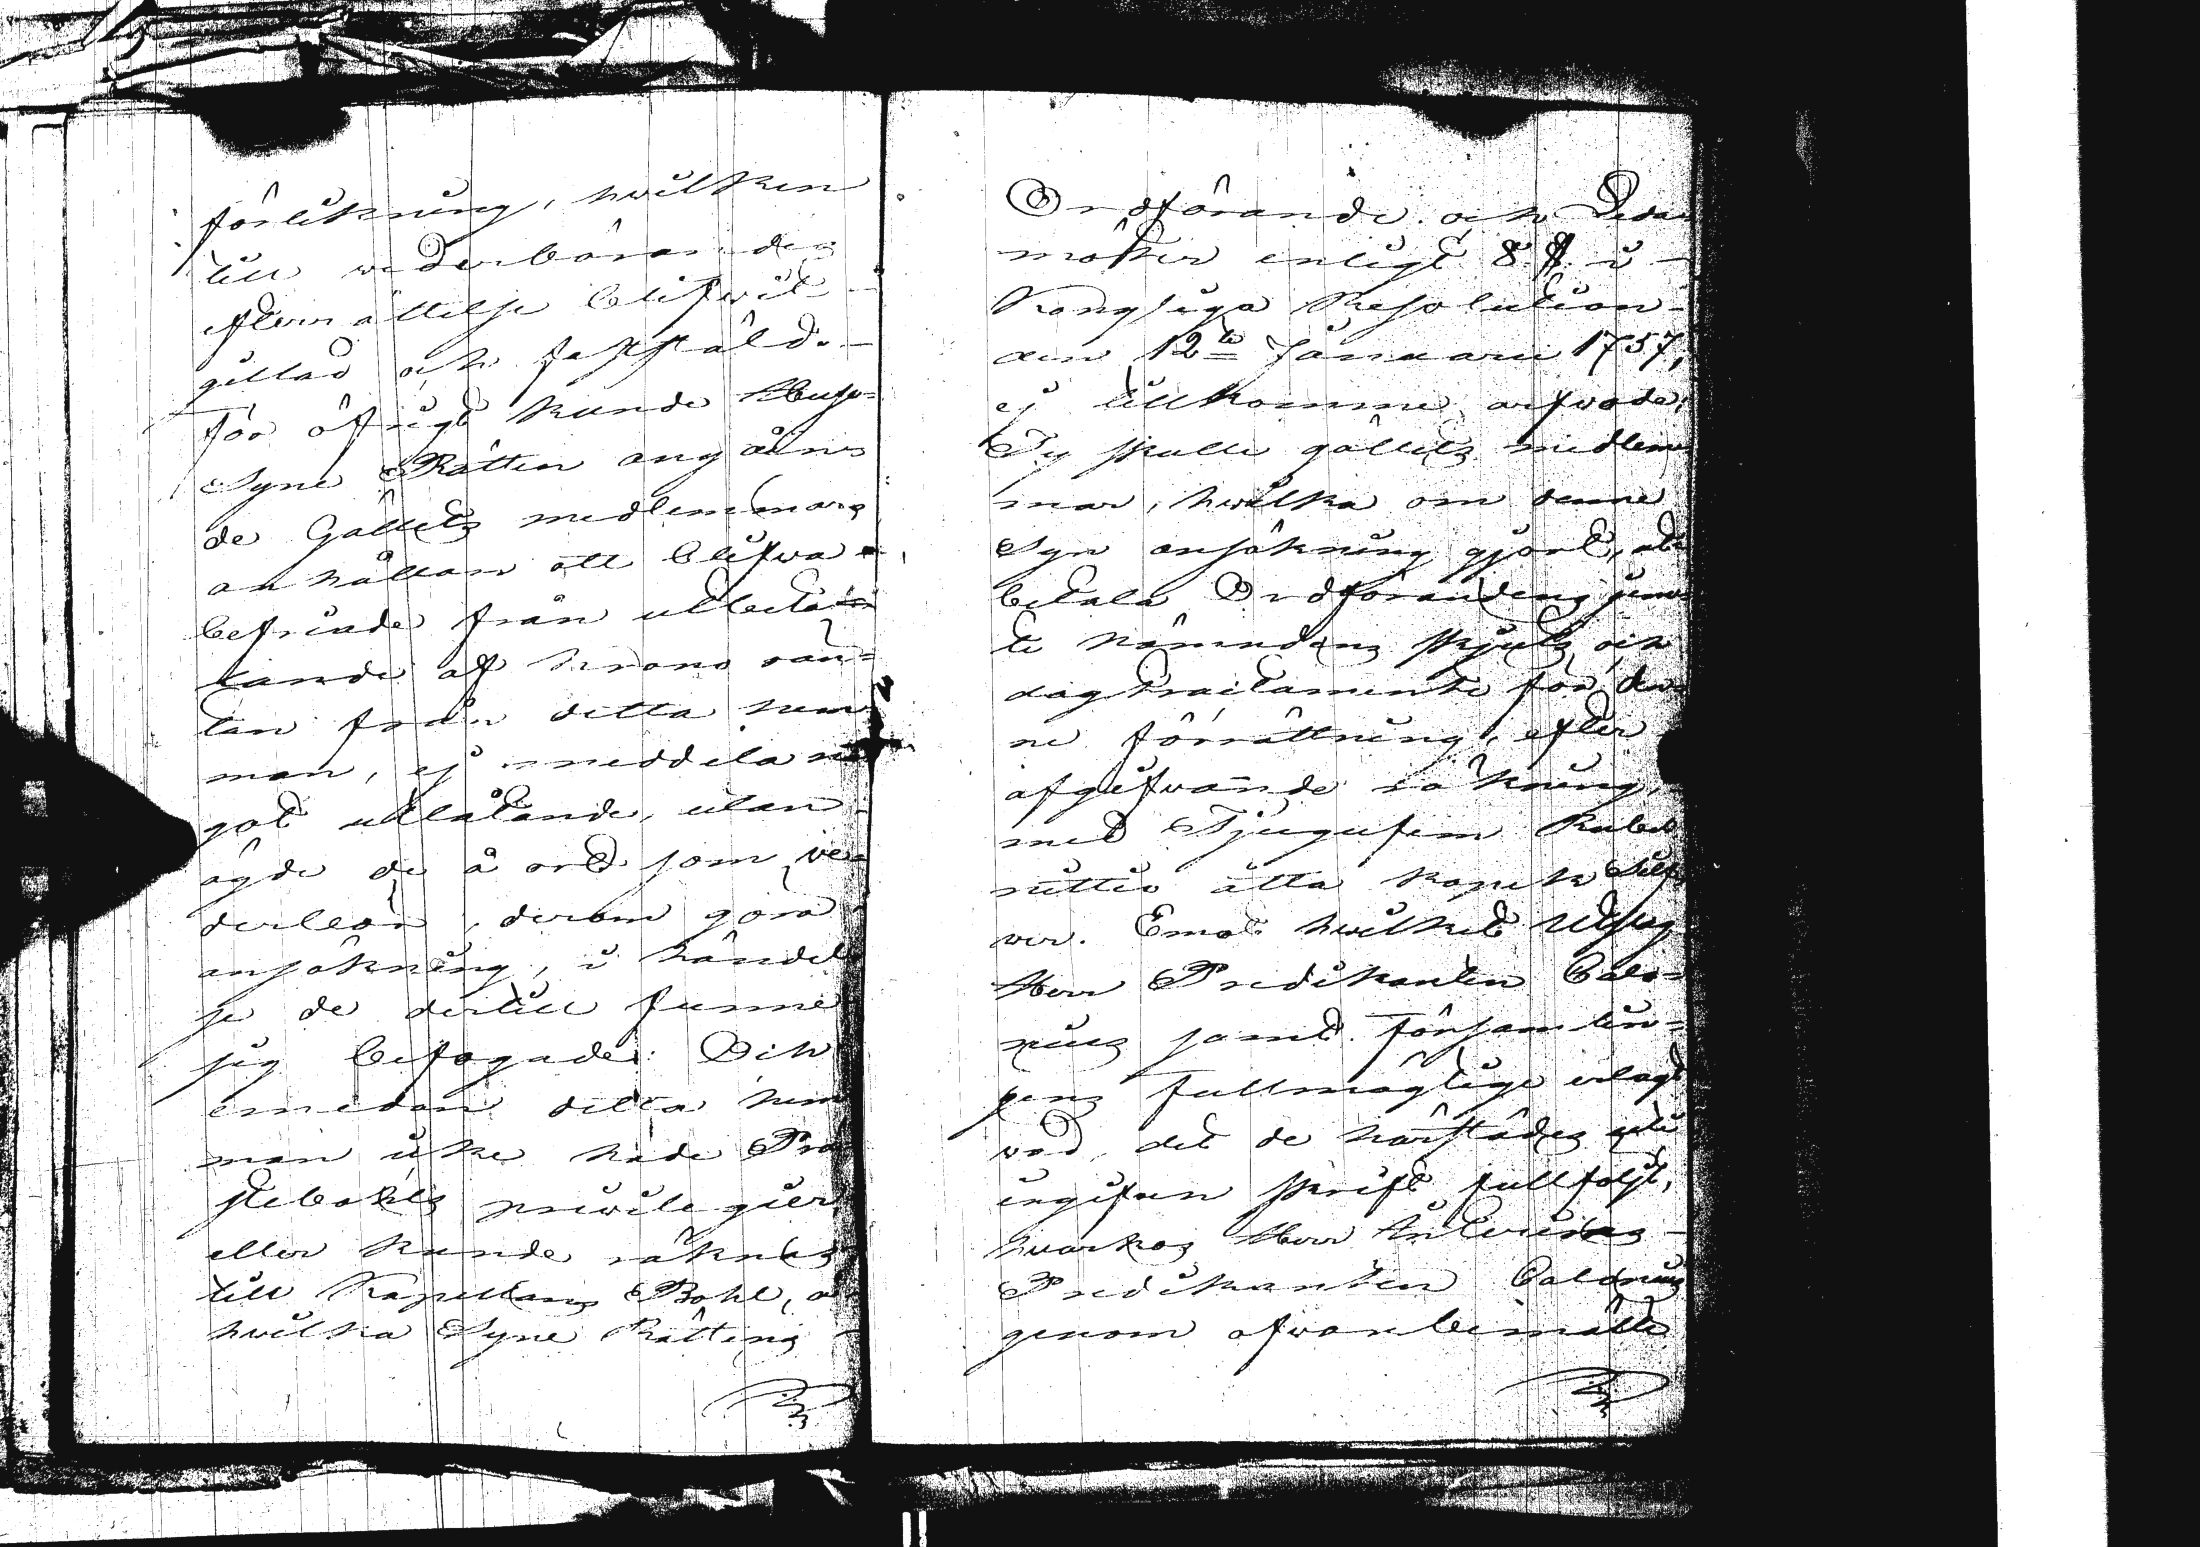 förlikning, hwilken
till wederbörandes
efterrättelse blifwit
gillad och fastställd. —
För öfrigt kunde Husе-
Syne Rätten angåen-
de Gällets medlemmars
anhållan att blifwa
befriade från utbeta-
lande af krono rän-
tan från detta hem-
man, ej meddela nå-
got utlåtande, utan
ägde de å ort som we-
derbör, derom göra
ansökning, i händel-
se de dertill funne
sig befogade: Och
emedan detta hem-
man icke hade Pro-
stebohls privilegier
eller kunde räknas
till Kapellans Bohl, å
hwilka Syne Rättens
Ordförande och Leda-
möter enligt 8 § i
Kongliga Resolution
den 12te Januarii 1757,
ej tillkomme arfwode;
Ty skulle gällets medlem-
mar, hwilka om denne
Syn ansökning gjort, ut-
betala Ordförandens jem-
te nämndens skjuts och
dagtraitamente för den-
ne förrättning, efter
afgifwande räkning,
med Tjugufem Rubel
nittio åtta kopek Silf-
wer. Emot hwilket Utslag
Herr Predikanten Calo-
nius samt Församlin-
gens fullmägtige erlagt
wad, det de härstädes uti
ingifven skrift fullföljt,
hvarhos Herr
Predikanten Calonius
genom ofwanbemälte